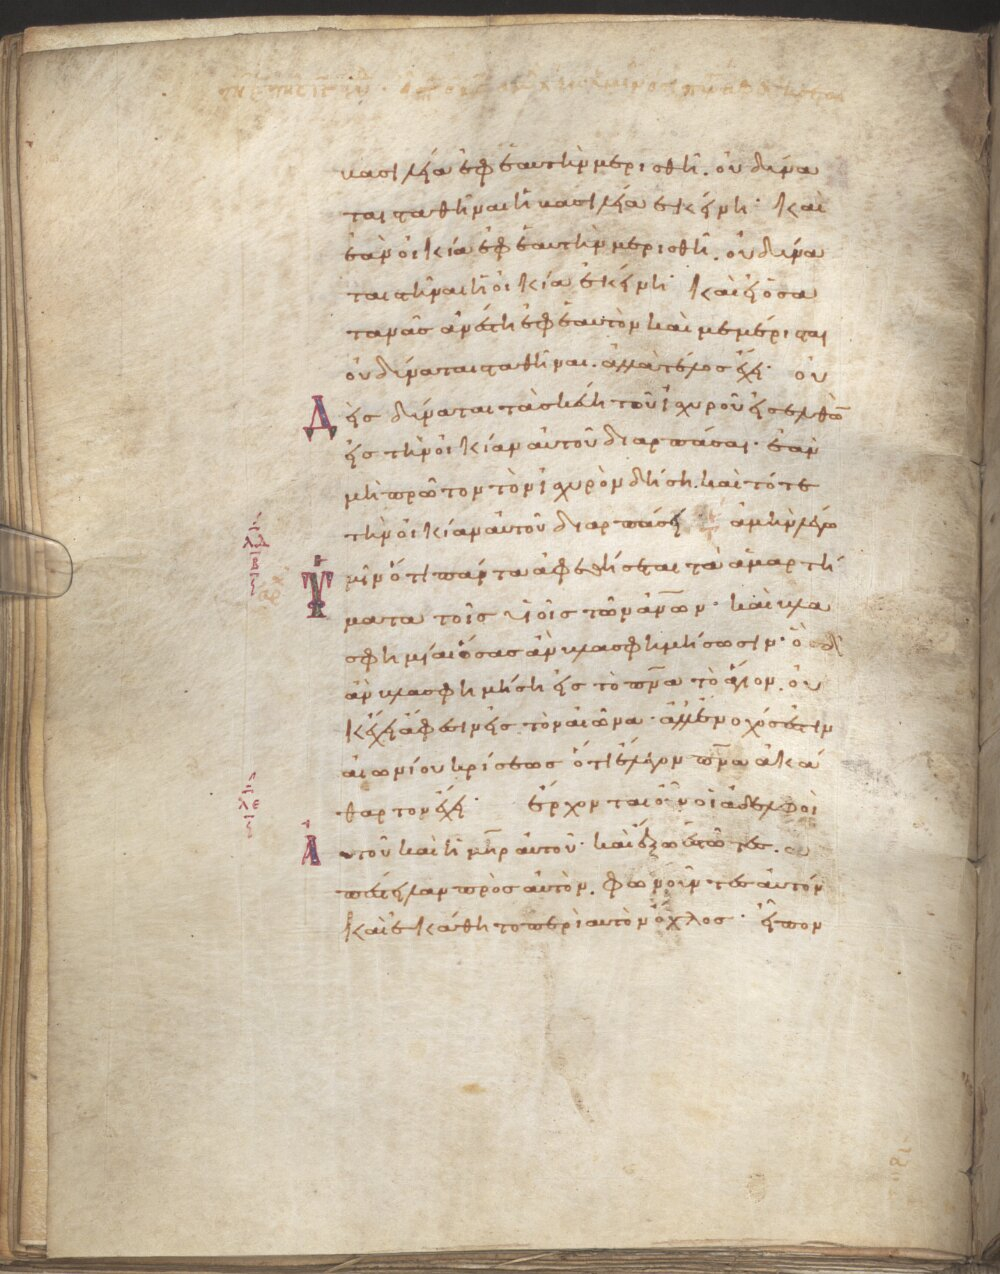 βασιλεία ἐφ ἑαυτὴν μερισθῆ. οὐ δύνα
ται σταθῆναι ἡ βασιλεία ἐκείνη· Καὶ
ἐὰν οἰκία ἐφ ἑαυτὴν μερισθῆ. οὐ δύνα
ται στῆναι ἡ οἰκία ἐκείνη· Καὶ εἰ ὁ σα
τανᾶς ἀνέστη ἐφ ἑαυτὸν καὶ μεμέρισται
οὐ δύναται σταθῆναι. ἀλλὰ τέλος ἔχει· οὐ
Δεὶς δύναται τὰ σκεύη τοῦ ἰσχυροῦ εἰσελθὼ
εἰς τὴν οἰκίαν αὐτοῦ διαρπάσαι· ἐὰν
μὴ πρῶτον τὸν ἰσχυρὸν δήσῃ. καὶ τότε
τὴν οἰκίαν αὐτοῦ διαρπάσει ἀμὴν λέγω
Ὑμῖν ὅτι πάντα ἀφεθήσεται τὰ ἁμαρτή
ματα τοῖς υἱοῖς τῶν ἀνων· καὶ βλα
σφημίαι ὅσας ἂν βλασφημήσωσιν· ὃς δ
ἂν βλασφημήσῃ εἰς τὸ πνα τὸ ἅγιον. οὐ
Κ ἔχει ἄφεσιν εἰς τὸν αἰῶνα· ἀλλ ἔνοχός ἐστιν
αἰωνίου κρίσεως ὅτι ἔλεγον πνα ἀκά
θαρτον ἔχει· ἔρχονται οὖν οἱ ἀδελφοὶ
Αὐτοῦ καὶ ἡ μηρ αὐτοῦ· καὶ ἔξω ἑστῶτες. ἀ
πέστειλαν πρὸς αὐτὸν. φωνοῦντες αὐτόν
Καὶ ἐκάθητο περὶ αὐτὸν ὄχλος· εἶπον